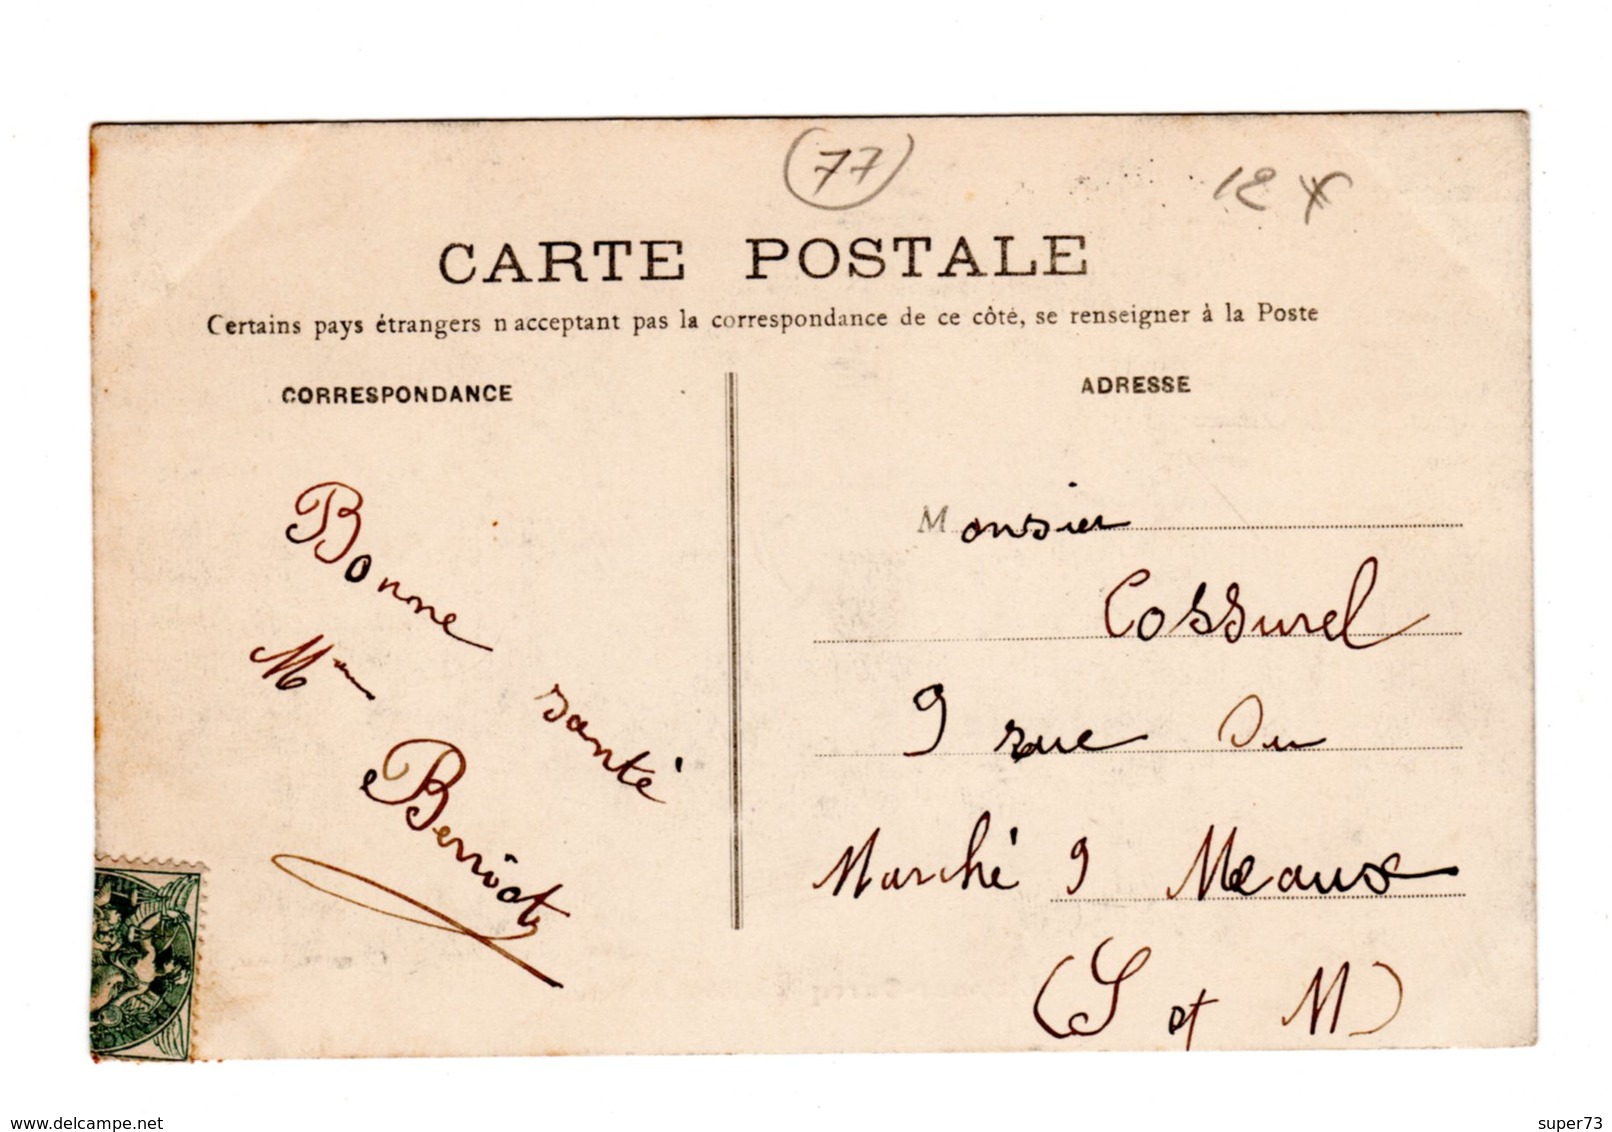 (77)
12
CARTE POSTALE
Certains pays étrangers n'acceptant pas la correspondance de ce côté, se renseigner à la Poste
CORRESPONDANCE
Bonne santé
Mme
Benoit
ADRESSE
Monsieu
Cossurel
9 rue Du
Marché 9 Meaux
(S et M)
www.delcampe.net
super73